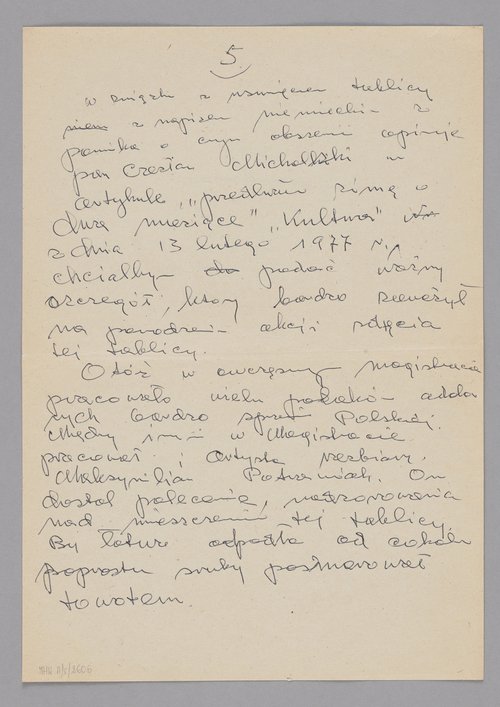 5
w związku z usunięciem tablicy
z napisem niemieckim z
pomnika o czym obszernie opisuje
pan Czesław Michalski w
artykule „przedłużam zimę o
dwa miesiące" „Kultura"
z dnia 13 lutego 1977 r.,
chciałbym podać ważny
szczegół, który bardzo zaważył
na powodzeniu akcji zdjęcia
tej tablicy.
Otóż w ówczesnym magistracie
pracowało wielu polaków odda
nych bardzo sprawie Polskiej.
Między innymi w Magistracie
pracował i artysta rzeźbiarz
Maksymilian Potrawiak. On
dostał polecenie, nadzorowania
nad umieszczeniem tej tablicy.
By łatwo odpadła od cokołu
poprostu śruby posmarował
towotem.